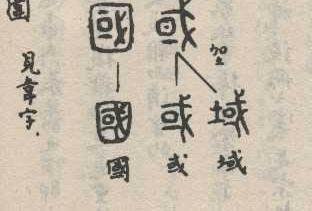 域
域
或
或
或
國
國
國
見韋字.